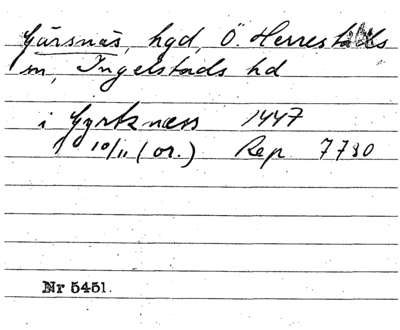 Gärsnäs, hgd, Ö. Herrestads
sn, Ingelstads hd
i Gyrknæss 1447
10/11 (or.) Rep 7780
Nr 5451.